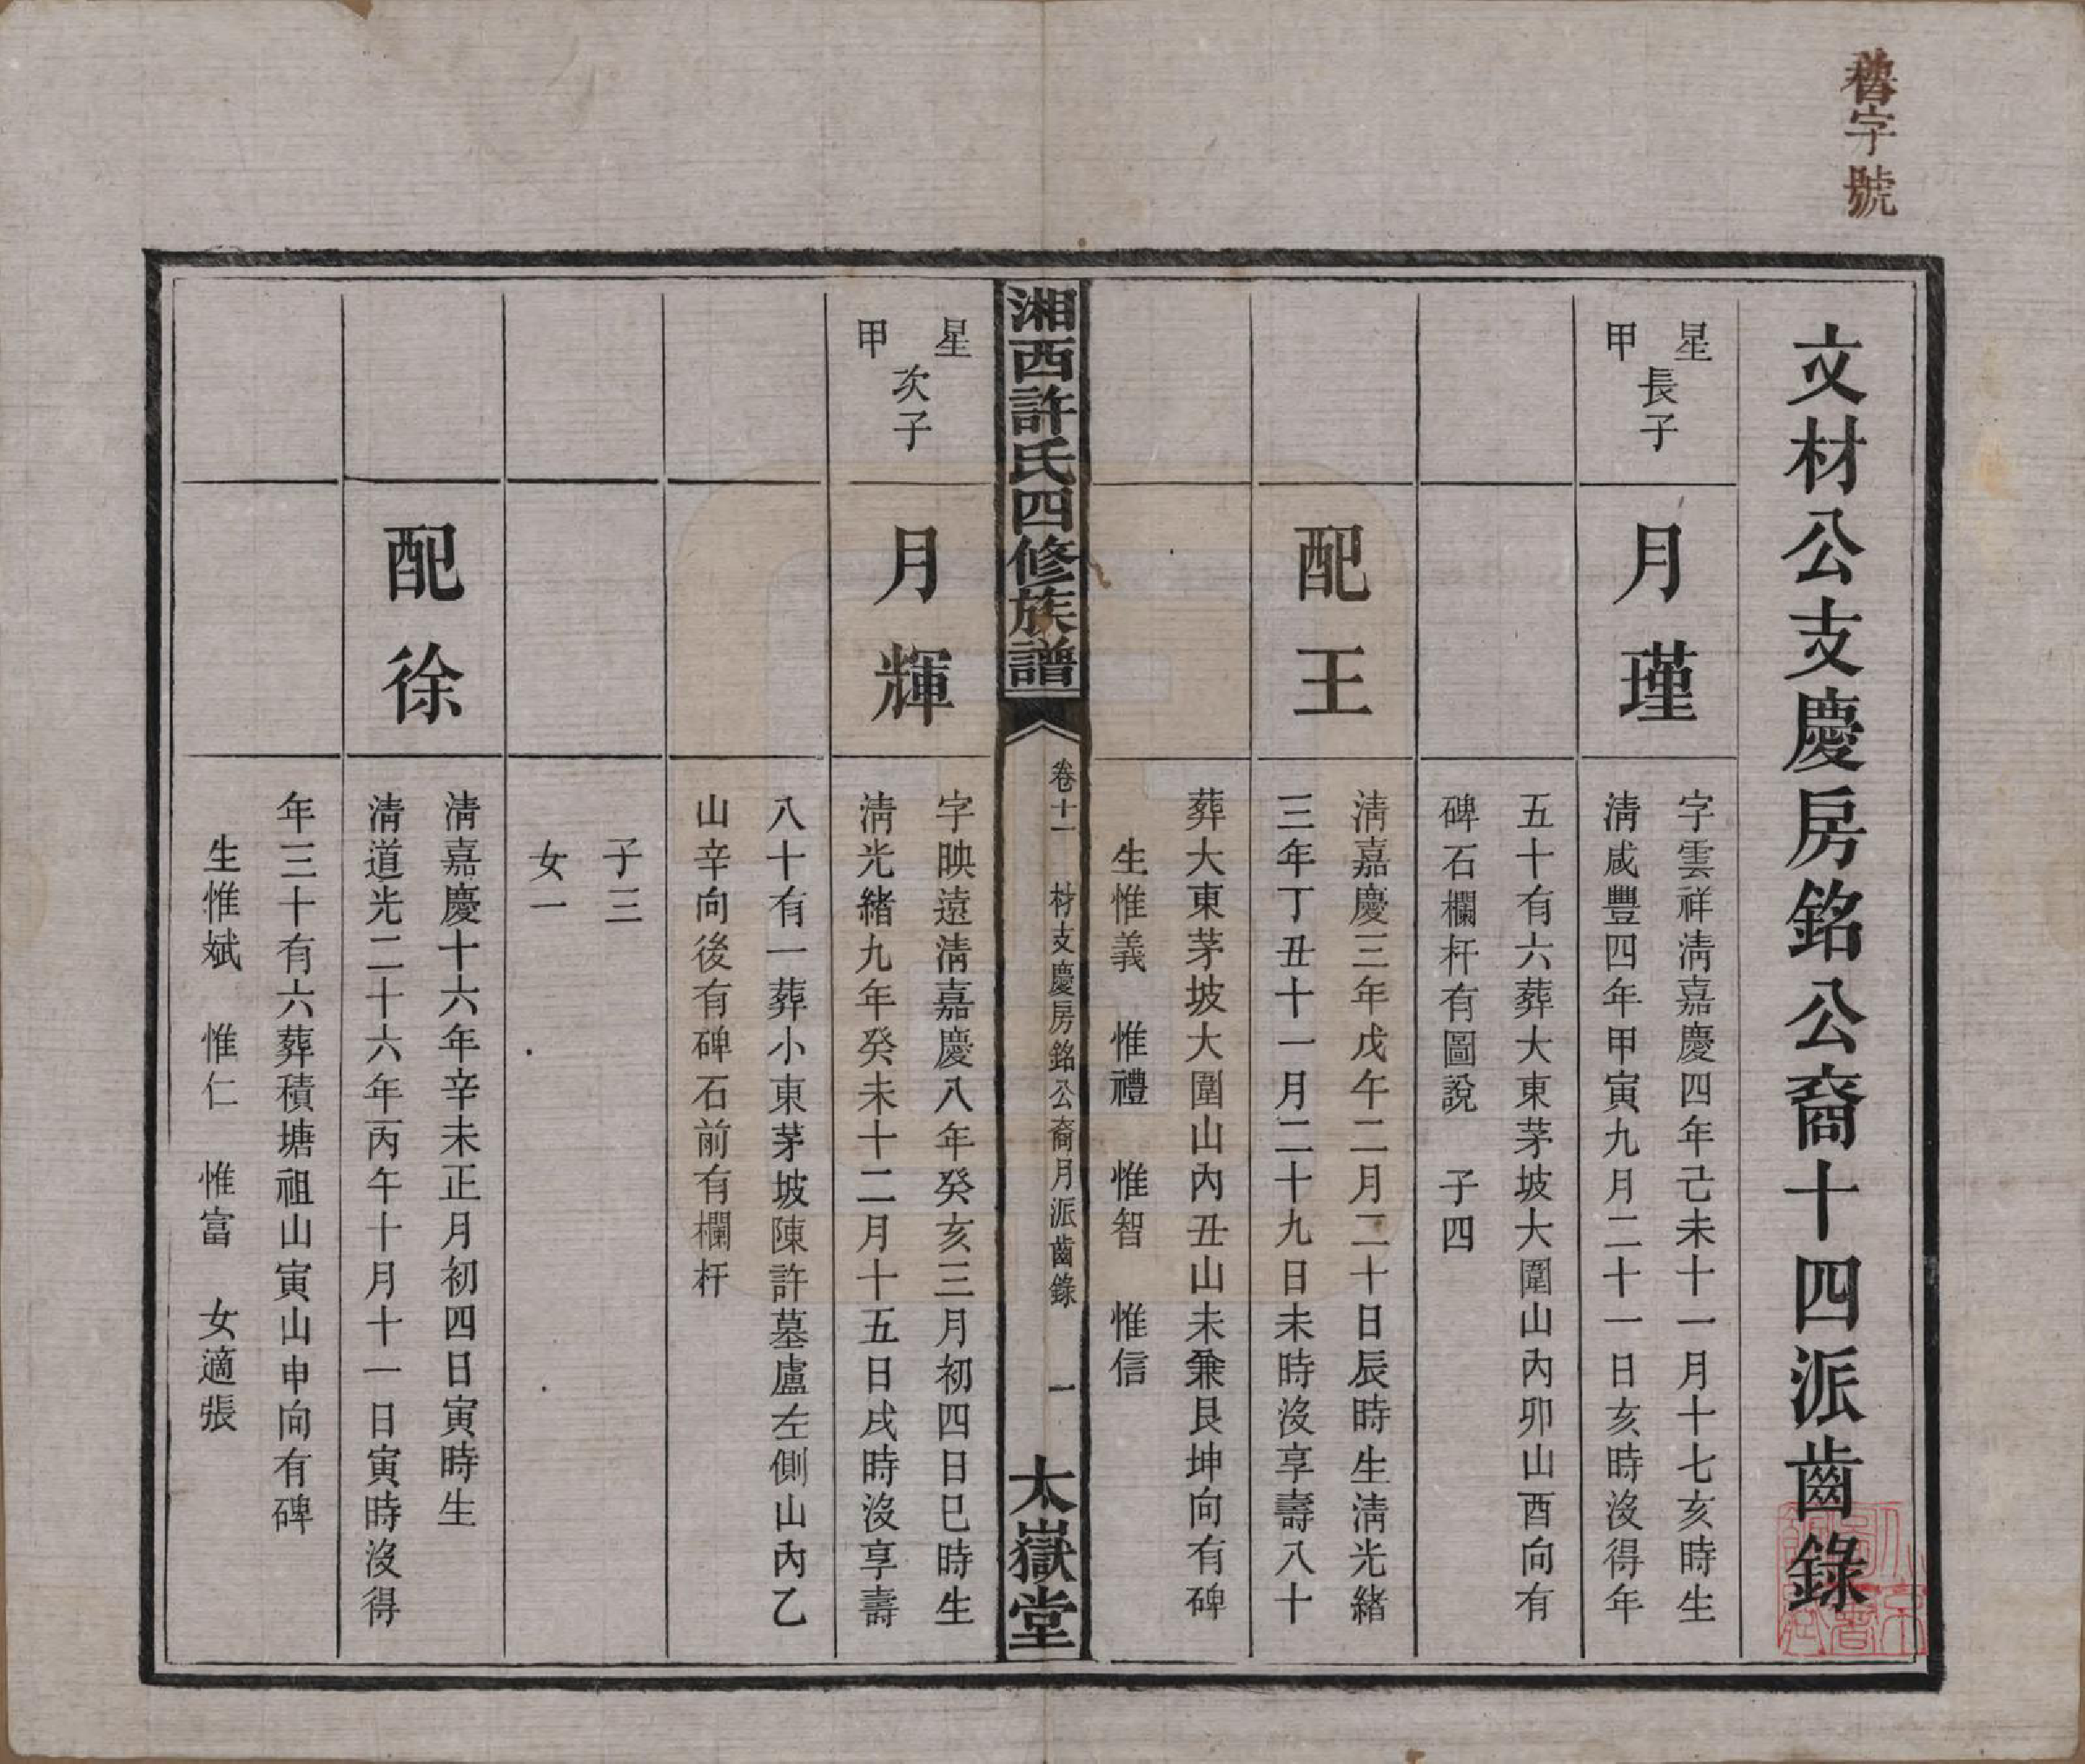 字號
文材公支慶房銘公裔十四派齒錄
星甲長子
月瑾
字雲祥淸嘉慶四年己未十一月十七亥時生
淸咸豐四年甲寅九月二十一日亥時沒得年
五十有六葬大東茅坡大圍山內卯山酉向有
碑石欄杆有圖說 子四
配王
淸嘉慶三年戊午二月二十日辰時生淸光緒
三年丁丑十一月二十九日未時沒享壽八十
葬大東茅坡大圍山內丑山未兼艮坤向有碑
生惟義 惟禮 惟智 惟信
湘西許氏四修族譜
卷十一 材支慶房銘公裔月派齒錄 一
太嶽堂
星甲次子
月輝
字映遠淸嘉慶八年癸亥三月初四日巳時生
淸光緒九年癸未十二月十五日戌時沒享壽
八十有一葬小東茅坡陳許墓廬左側山內乙
山辛向後有碑石前有欄杆
子三
女一
配徐
淸嘉慶十六年辛未正月初四日寅時生
淸道光二十六年丙午十月十一日寅時沒得
年三十有六葬積塘祖山寅山申向有碑
生惟斌 惟仁 惟富 女適張